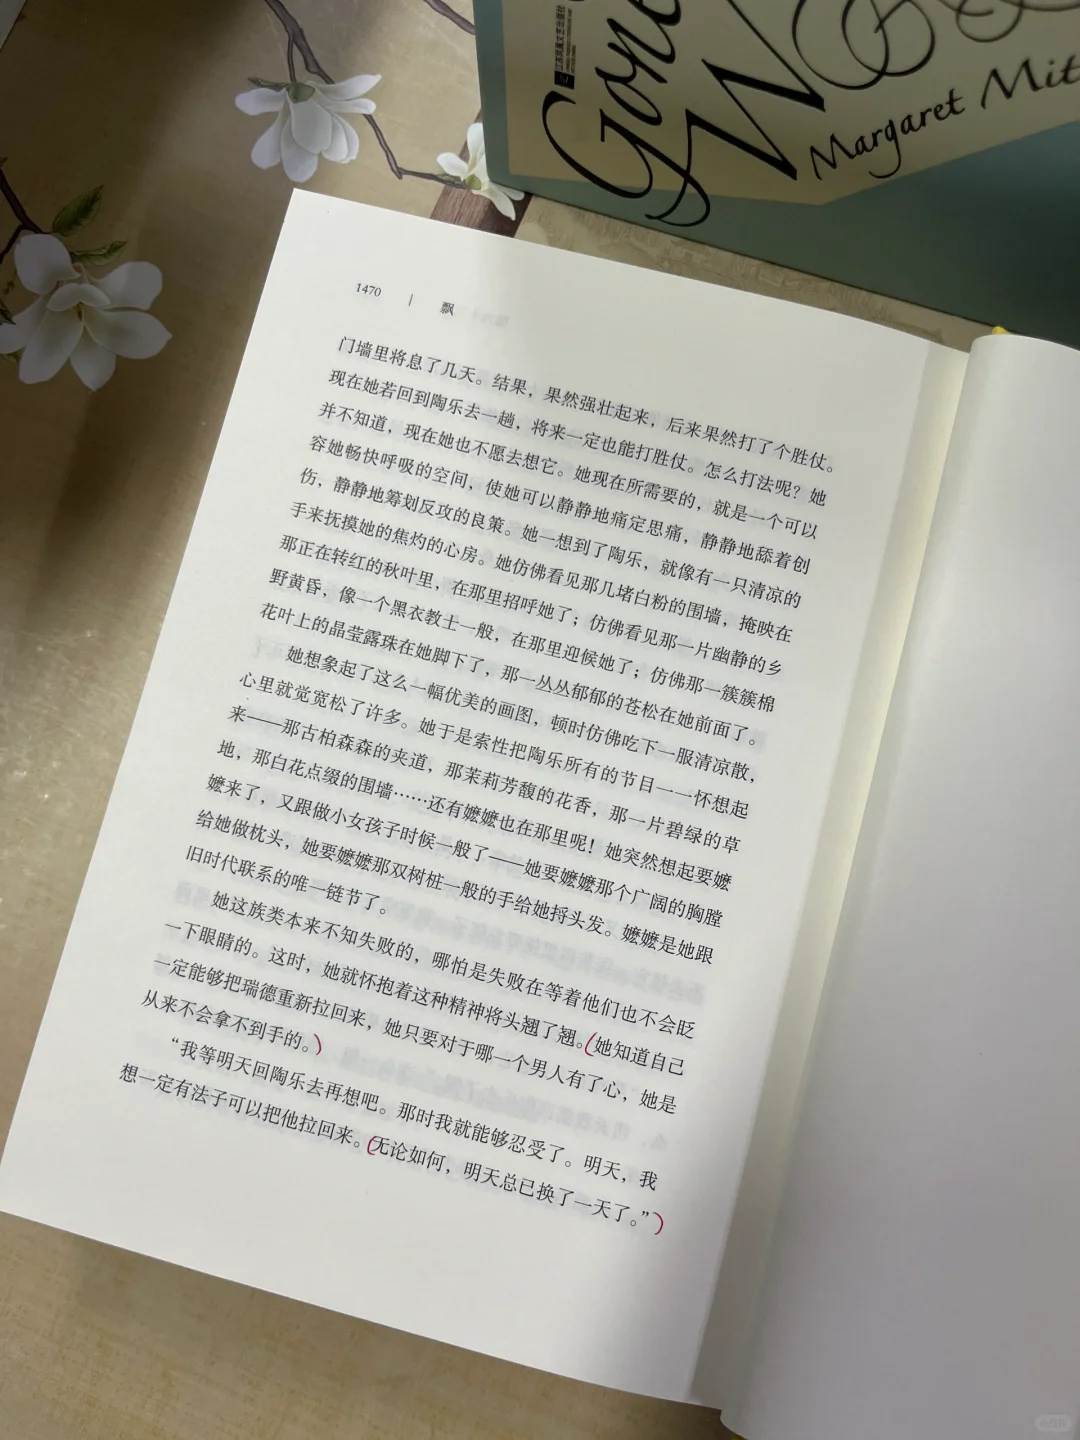 Gone
W
Margaret Mit
1470 | 飘
门墙里将息了几天。结果，果然强壮起来，后来果然打了个胜仗。
现在她若回到陶乐去一趟，将来一定也能打胜仗。怎么打法呢？她
并不知道，现在她也不愿去想它。她现在所需要的，就是一个可以
容她畅快呼吸的空间，使她可以静静地痛定思痛，静静地舔着创
伤，静静地筹划反攻的良策。她一想到了陶乐，就像有一只清凉的
手来抚摸她的焦灼的心房。她仿佛看见那几堵白粉的围墙，掩映在
那正在转红的秋叶里，在那里招呼她了；仿佛看见那一片幽静的乡
野黄昏，像一个黑衣教士一般，在那里迎候她了；仿佛那一簇簇棉
花叶上的晶莹露珠在她脚下了，那一丛丛郁郁的苍松在她前面了。
她想象起了这么一幅优美的画图，顿时仿佛吃下一服清凉散，
心里就觉宽松了许多。她于是索性把陶乐所有的节目一一怀想起
来——那古柏森森的夹道，那茉莉芳馥的花香，那一片碧绿的草
地，那白花点缀的围墙……还有嬷嬷也在那里呢！她突然想起要嬷
嬷来了，又跟做小女孩子时候一般了——她要嬷嬷那个广阔的胸膛
给她做枕头，她要嬷嬷那双树桩一般的手给她捋头发。嬷嬷是她跟
旧时代联系的唯一链节了。
她这族类本来不知失败的，哪怕是失败在等着他们也不会眨
一下眼睛的。这时，她就怀抱着这种精神将头翘了翘。(她知道自己
一定能够把瑞德重新拉回来，她只要对于哪一个男人有了心，她是
从来不会拿不到手的。)
“我等明天回陶乐去再想吧。那时我就能够忍受了。明天，我
想一定有法子可以把他拉回来。(无论如何，明天总已换了一天了。”)